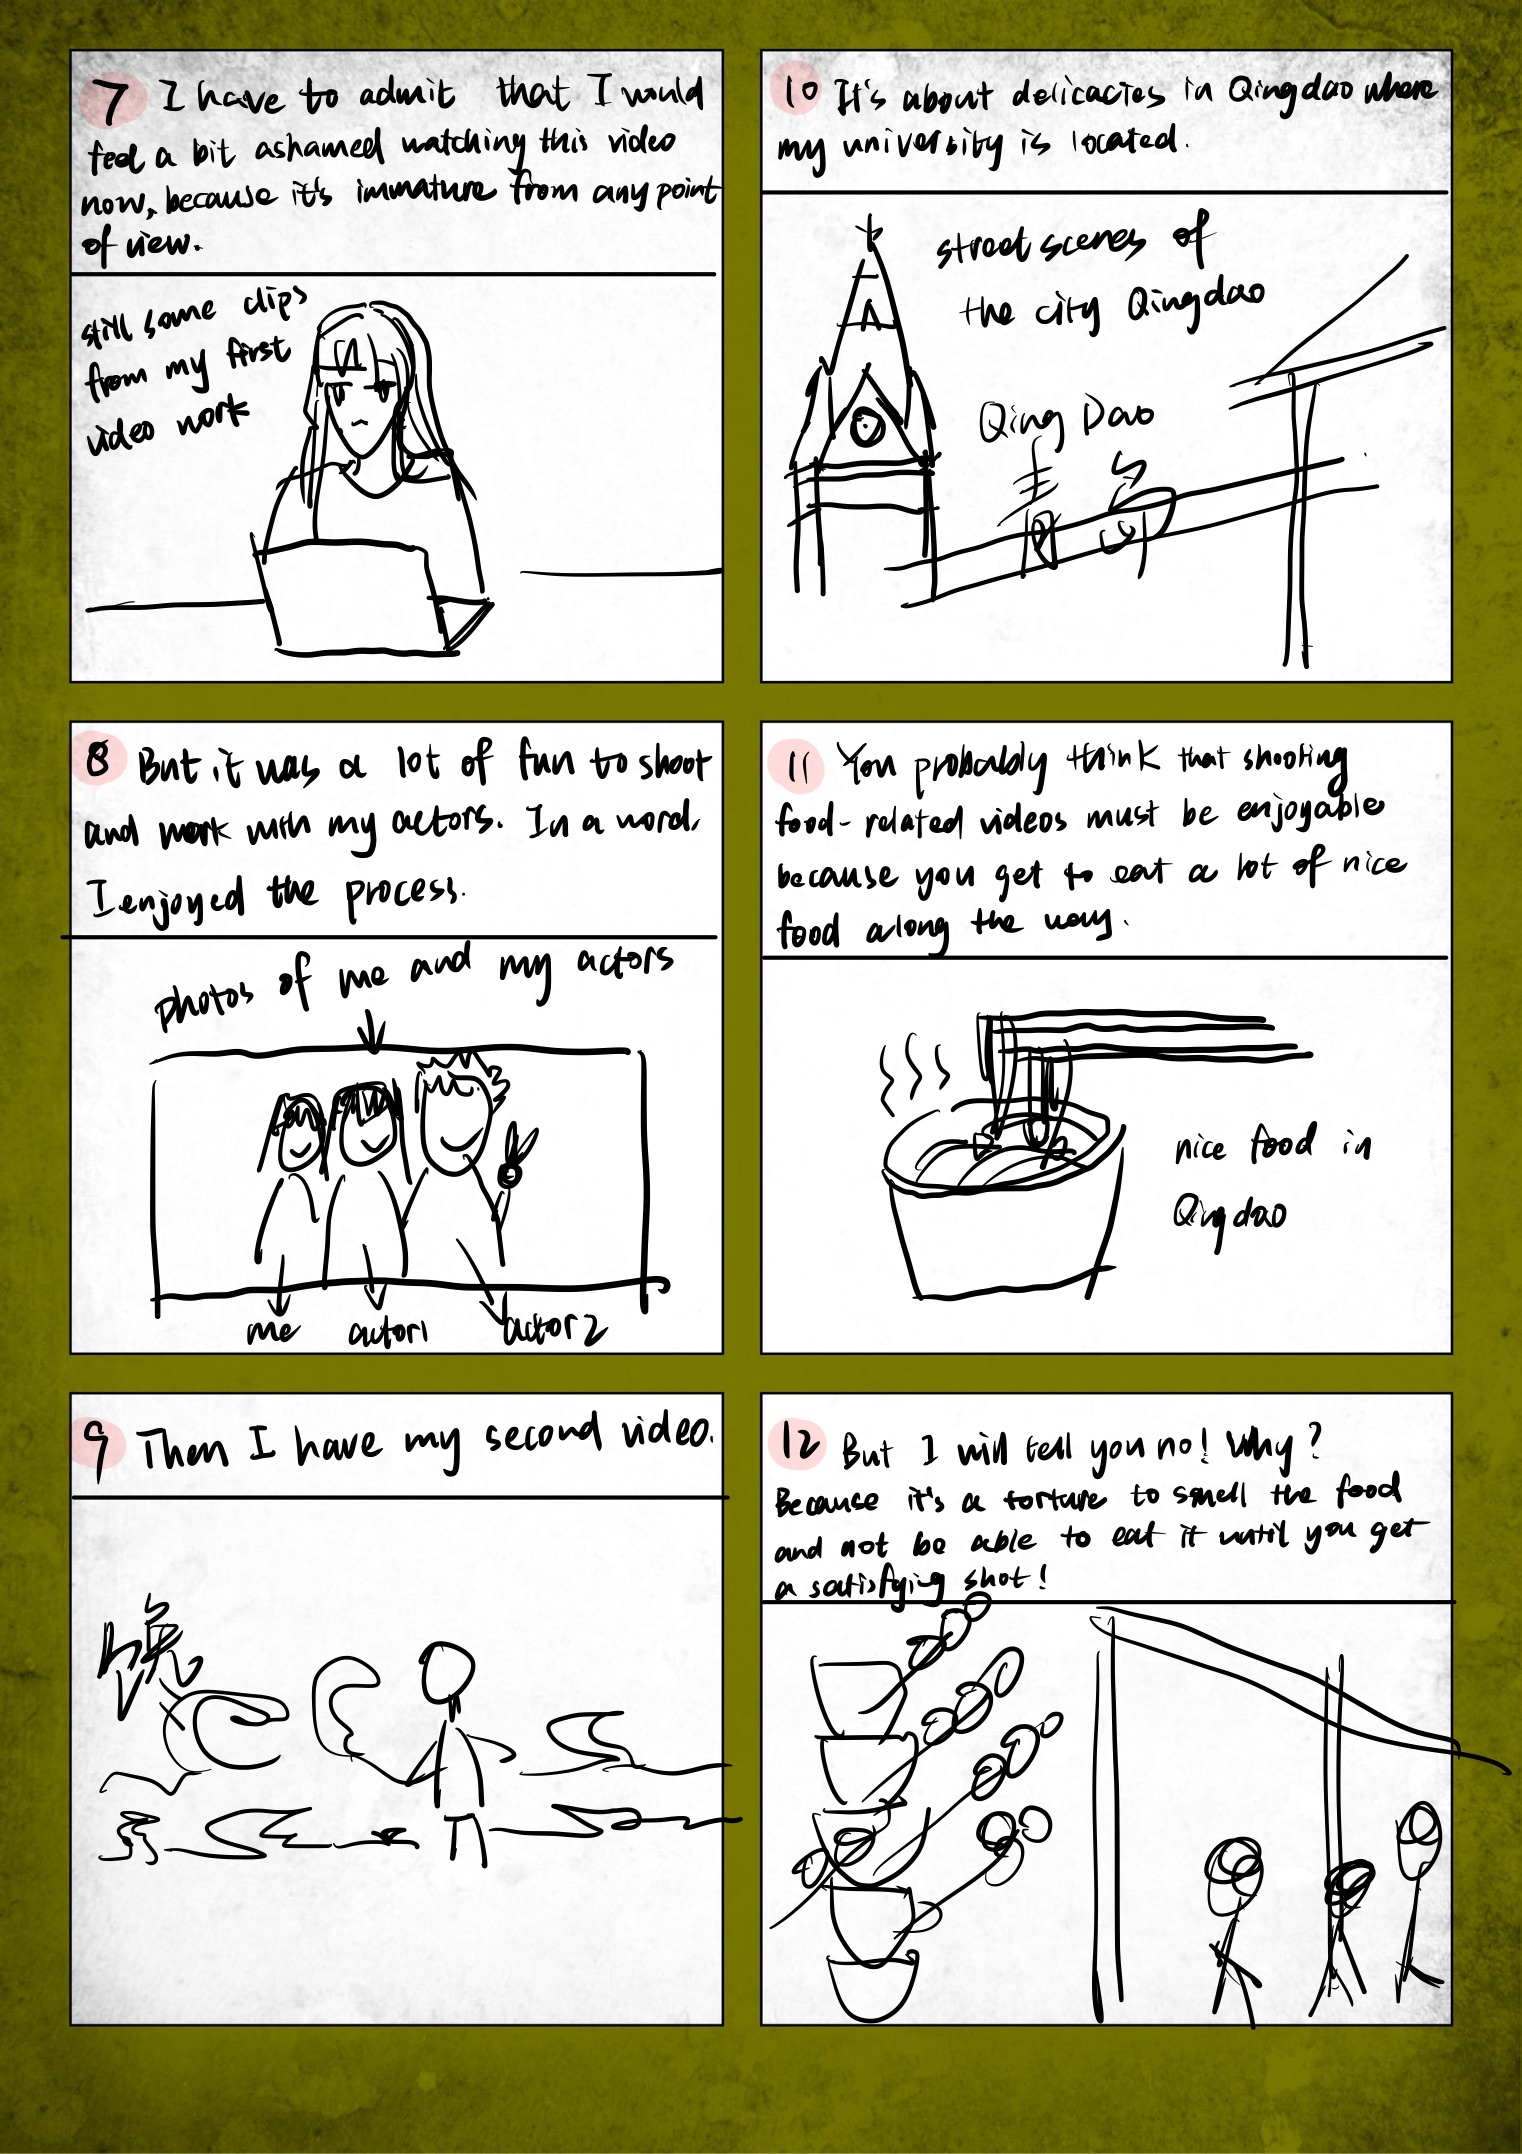 7 I have to admit that I would
feel a bit ashamed watching this video
now, because it's immature from any point
of view.
still some clips
from my first
video work
8 But it was a lot of fun to shoot
and work with my actors. In a word,
I enjoyed the process.
photos of me and my actors
me actor1 actor2
9 Then I have my second video.
10 It's about delicacies in Qingdao where
my university is located.
street scenes of
the city Qingdao
Qing Dao
11 You probably think that shooting
food-related videos must be enjoyable
because you get to eat a lot of nice
food along the way.
nice food in
Qingdao
12 But I will tell you no! Why?
Because it's a torture to smell the food
and not be able to eat it until you get
a satisfying shot!